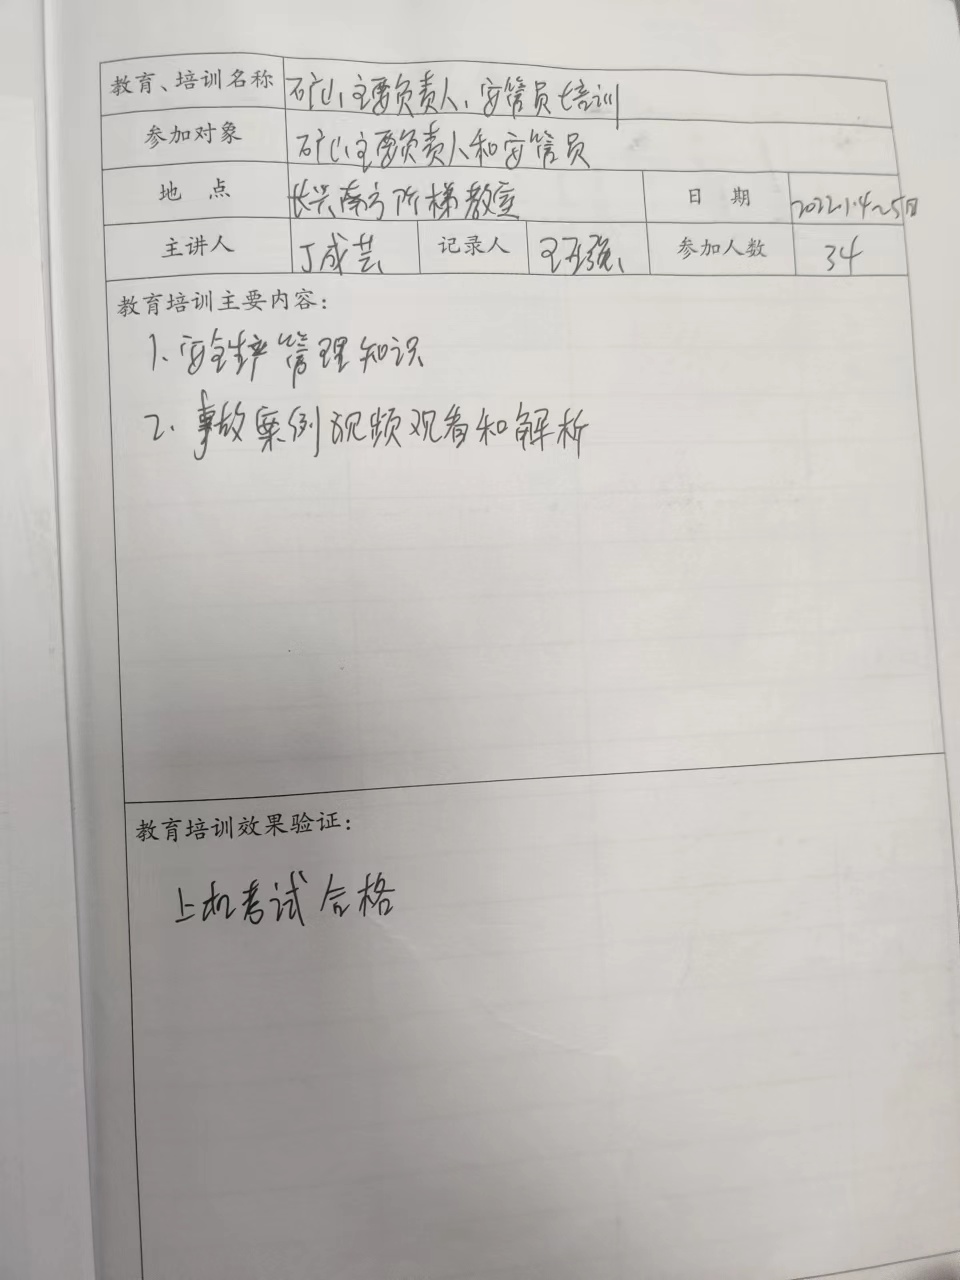 教育、培训名称 矿山主要负责人、安管员培训
参加对象 矿山主要负责人和安管员
地 点 长兴南方阶梯教室 日 期 2022.1.4~5日
主讲人 丁成芸 记录人 参加人数 34
教育培训主要内容：
1、安全生产管理知识
2、事故案例视频观看和解析
教育培训效果验证：
上机考试合格